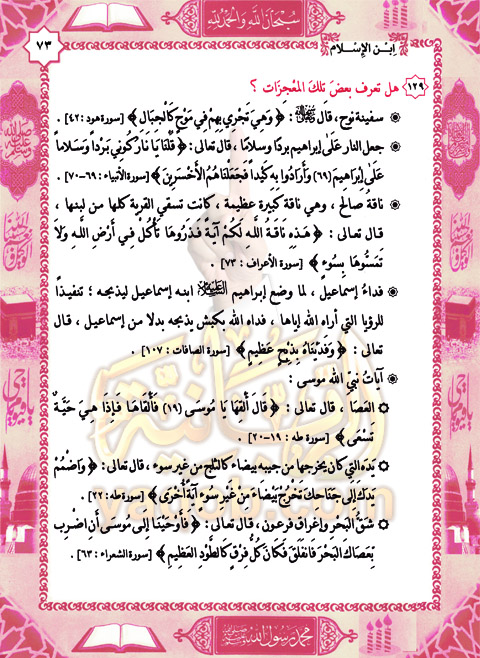 سبحان الله والحمد لله
٧٣
ابن الإسلام
١٢٩ هل تعرف بعض تلك المعجزات ؟
سفينة نوح ، قال ﷻ : ﴿ وَهِيَ تَجْرِي بِهِمْ فِي مَوْجٍ كَالْجِبَالِ ﴾ [سورة هود :٤٢] .
جعل النار على إبراهيم بردًا وسلامًا ، قال تعالى : ﴿ قُلْنَا يَا نَارُ كُونِي بَرْداً وَسَلَاماً
عَلَى إِبْرَاهِيمَ (٦٩) وَأَرَادُوا بِهِ كَيْداً فَجَعَلْنَاهُمُ الْأَخْسَرِينَ ﴾ [سورة الأنبياء : ٦٩-٧٠] .
ناقة صالح ، وهي ناقة كبيرة عظيمة ، كانت تسقي القرية كلها من لبنها ،
قال تعالى : ﴿ هَذِهِ نَاقَةُ اللَّهِ لَكُمْ آيَةً فَذَرُوهَا تَأْكُلْ فِي أَرْضِ اللَّهِ وَلَا
تَمَسُّوهَا بِسُوءٍ ﴾ [سورة الأعراف : ٧٣] .
فداءُ إسماعيل ، لما وضع إبراهيم عليه السلام ابنه إسماعيل ليذبحه ؛ تنفيذًا
للرؤيا التي أراه الله إياها ، فداه الله بكبش يذبحه بدلا من إسماعيل ، قال
تعالى : ﴿ وَفَدَيْنَاهُ بِذِبْحٍ عَظِيمٍ ﴾ [سورة الصافات : ١٠٧] .
آياتُ نبيِّ الله موسى :
العَصَا ، قال تعالى : ﴿ قَالَ أَلْقِهَا يَا مُوسَى (١٩) فَأَلْقَاهَا فَإِذَا هِيَ حَيَّةٌ
تَسْعَى ﴾ [سورة طه : ١٩-٢٠] .
يَدُه التي كان يخرجها من جيبه بيضاء كالثلج من غير سوء ، قال تعالى : ﴿ وَاضْمُمْ
يَدَكَ إِلَى جَنَاحِكَ تَخْرُجْ بَيْضَاءَ مِنْ غَيْرِ سُوءٍ آيَةً أُخْرَى ﴾ [سورة طه : ٢٢] .
شقُّ البَحْرِ وإغراق فرعون ، قال تعالى : ﴿ فَأَوْحَيْنَا إِلَى مُوسَى أَنِ اضْرِبْ
بِعَصَاكَ الْبَحْرَ فَانْفَلَقَ فَكَانَ كُلُّ فِرْقٍ كَالطَّوْدِ الْعَظِيمِ ﴾ [سورة الشعراء : ٦٣] .
محمد رسول الله ﷺ